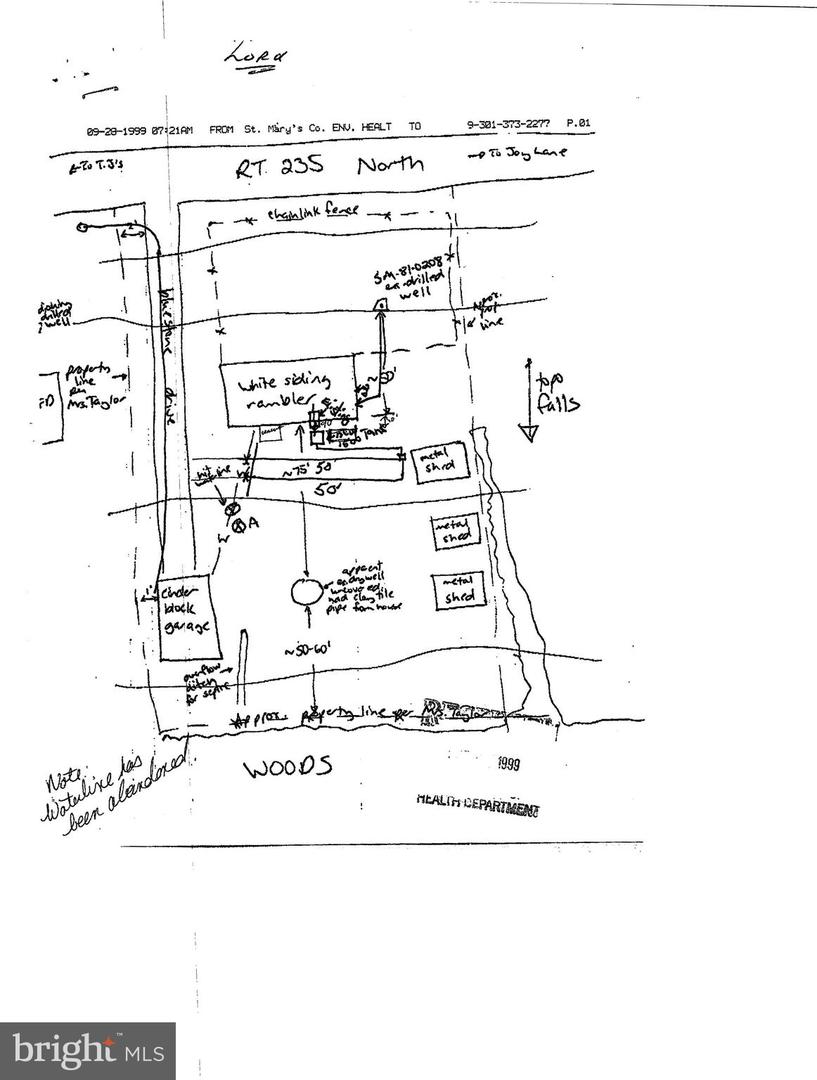 LORD
09-28-1999 07:21AM FROM St. Mary's Co. ENV. HEALT TO 9-301-373-2277 P.01
← To T.J's
RT. 235 North
→ To Joy Lane
chainlink fence
2'
SM-81-0208
ex. drilled
well
bluestone drive
drilled
well
property
line
per
Mrs. Taylor
line
white siding
rambler
topo
falls
1500 Tank
metal
shed
~75' 50'
50'
W
A
W
metal
shed
apparent
drywell
uncovered
had clay tile
pipe from house
metal
shed
1'
cinder
block
garage
~50-60'
overflow
ditch
for septic
Approx. property line per Mrs. Taylor
WOODS
Note:
Waterline has
been abandoned.
1999
HEALTH DEPARTMENT
bright™ MLS